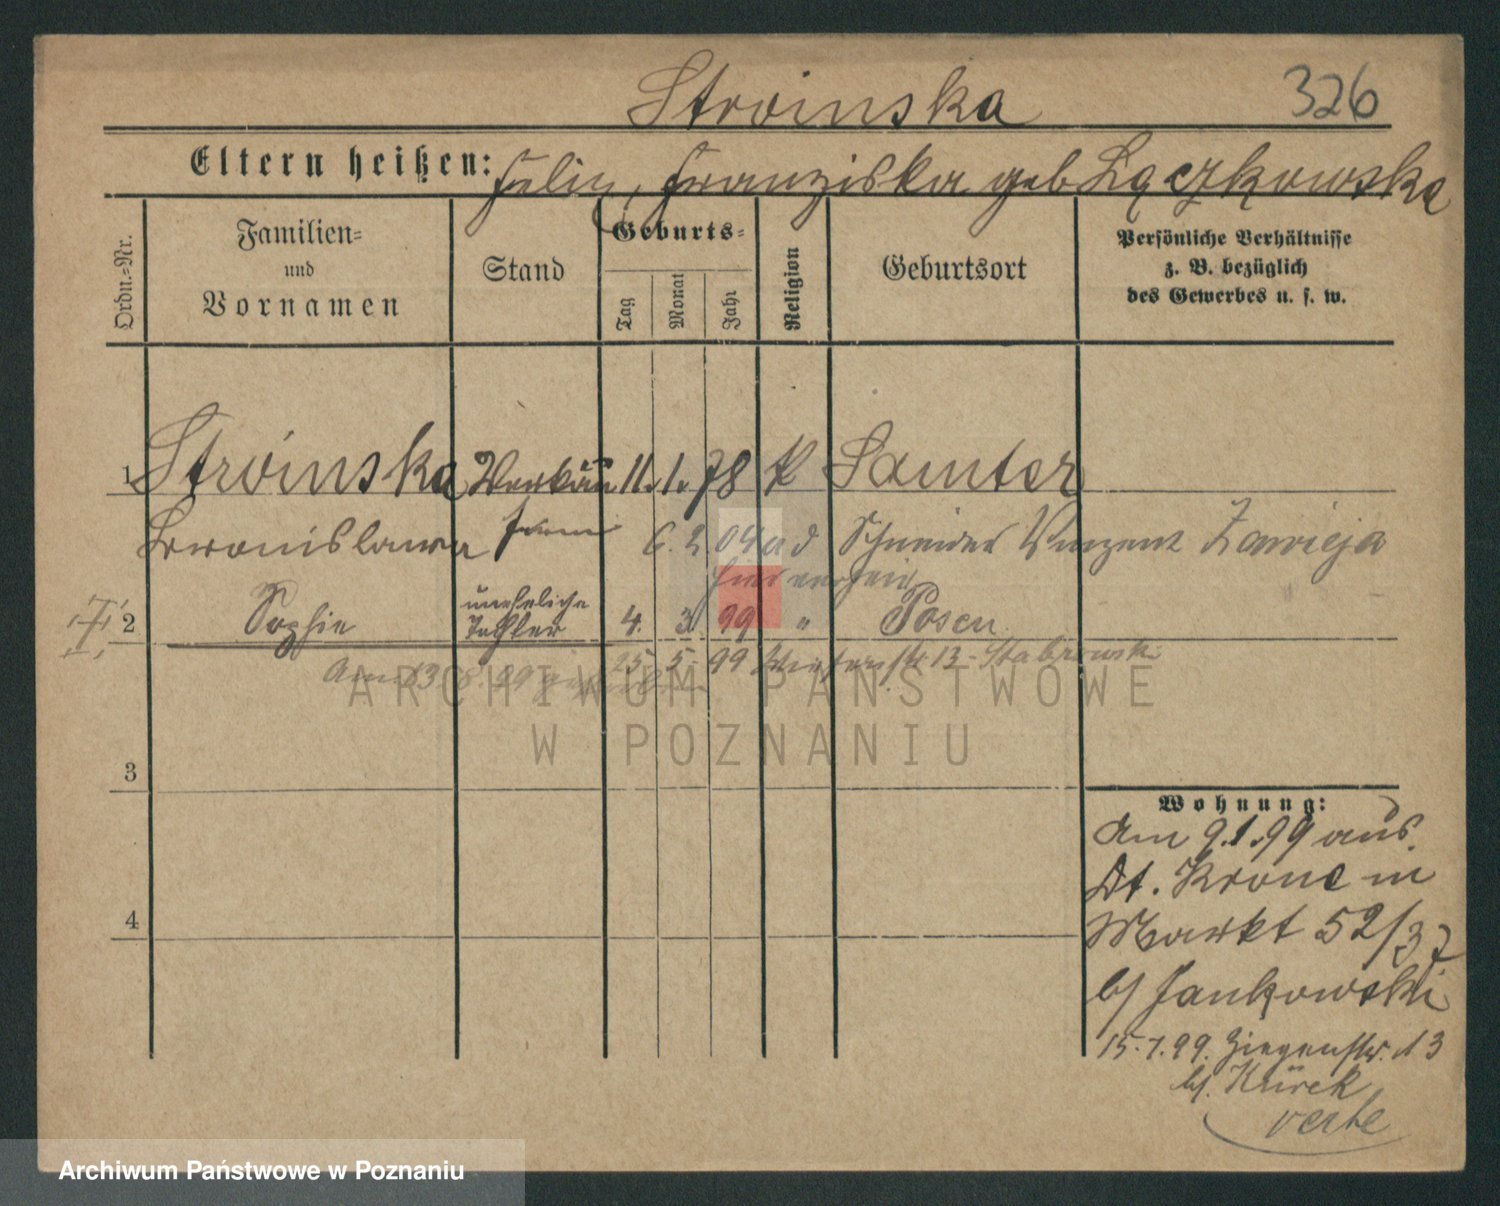 Stroinska 326
Eltern heißen: Felix, Franziska geb Łączkowska
Ordn.=Nr.
Familien=
und
Vornamen
Stand
Geburts=
Tag
Monat
Jahr
Religion
Geburtsort
Persönliche Verhältnisse
z. B. bezüglich
des Gewerbes u. s. w.
1 Stroinska Verkäu 11. 1. 78 K Samter
Bronislawa ferin 6. 2. 04 ad Schneider Vinzent Zawieja
hier verheir
2 Sophie uneheliche Tochter 4. 3. 99 " Posen
25 5. 99 13 - Stabrowski
Am 13 8. 99
3
4
Wohnung:
Am 9.1.99 aus
Dt. Krone in
Markt 52/3
b/ Jankowski
15.7.99. Ziegenstr. 13
b/.
verte
ARCHIWUM PAŃSTWOWE
W POZNANIU
Archiwum Państwowe w Poznaniu